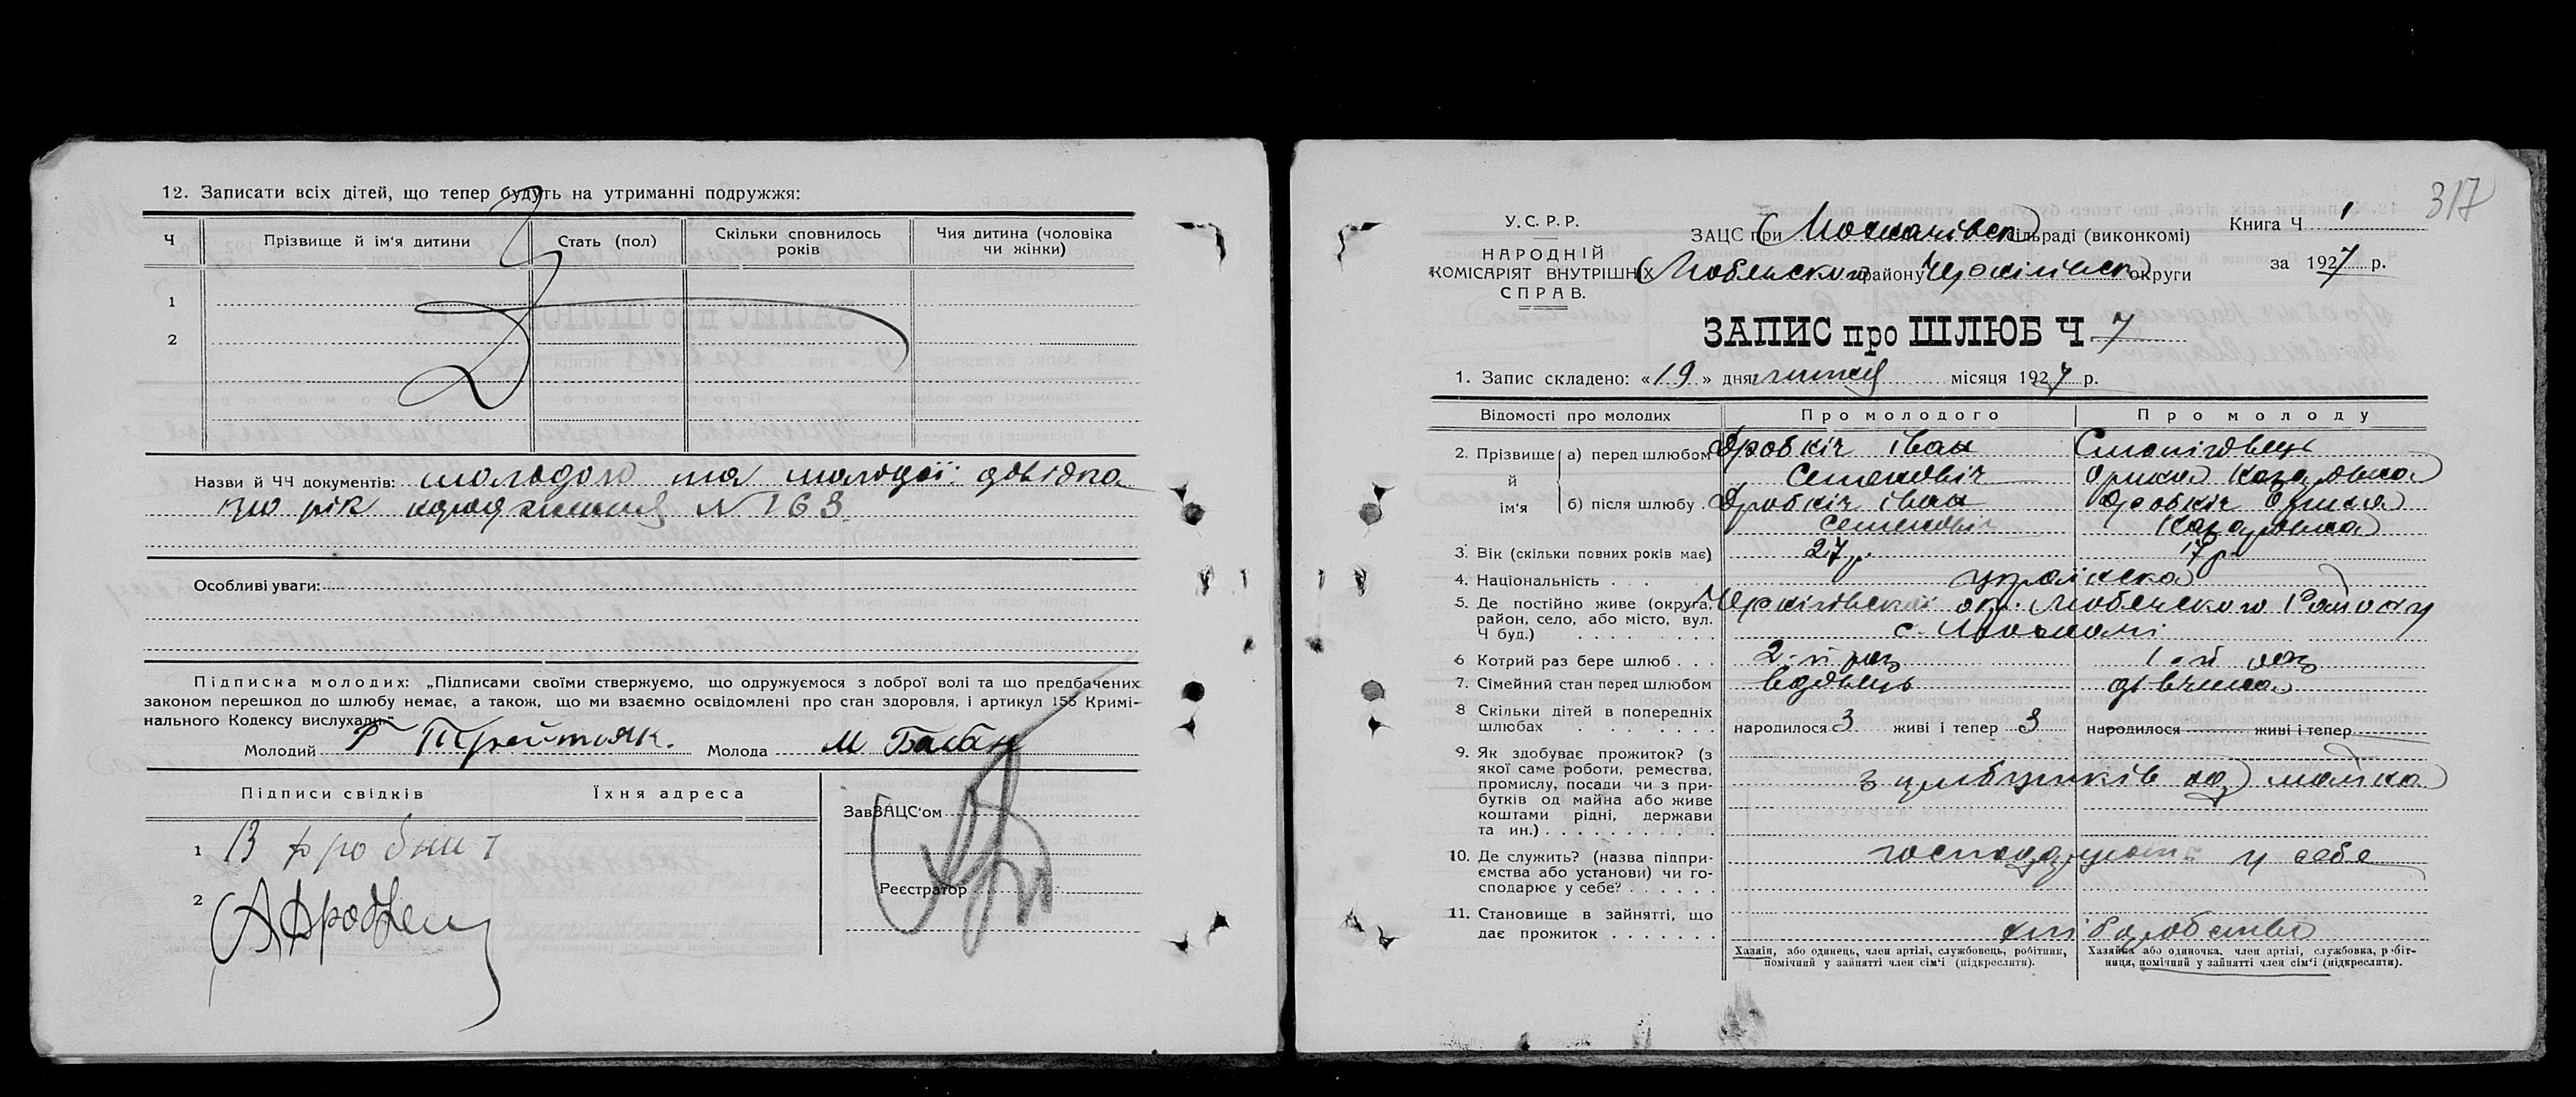 12. Записати всіх дітей, що тепер будуть на утриманні подружжя:
Ч
Прізвище й ім'я дитини
Стать (пол)
Скільки сповнилось років
Чия дитина (чоловіка чи жінки)
1
2
Назви й ЧЧ документів: молодого та молодої: довідка
про рік народження N 163
Особливі уваги:
Підписка молодих: „Підписами своїми стверджуємо, що одружуємося з доброї волі та що предбачених
законом перешкод до шлюбу немає, а також, що ми взаємно освідомлені про стан здоровля, і артикул 155 Кримі-
нального Кодексу вислухали."
Молодий Третяк. Молода М Бабич
Підписи свідків
Їхня адреса
ЗавЗАЦС'ом
1
2
Реєстратор
317
У.С.Р.Р.
НАРОДНІЙ
КОМІСАРІЯТ ВНУТРІШНІХ
СПРАВ.
ЗАЦС при сільраді (виконкомі)
Любецького району Чернігівськ округи
Книга Ч 1
за 1927 р.
ЗАПИС про ШЛЮБ Ч 7
1. Запис складено: «19» дня місяця 1927 р.
Відомості про молодих
Про молодого
Про молоду
2. Прізвище й ім'я
а) перед шлюбом Дробкіч Іван
Семеновіч
Орина
б) після шлюбу Дробкіч Іван
Семеновіч
Дробкіч Орина
3. Вік (скільки повних років має) 27 р. 17 р.
4. Національність українська
5. Де постійно живе (округа, район, село, або місто, вул. Ч буд.) Чернігівської окр. Любецького Району
с.
6 Котрий раз бере шлюб 2-й раз 1-й раз
7. Сімейний стан перед шлюбом вдовець дівчина
8 Скільки дітей в попередніх шлюбах народилося 3 живі і тепер 3 народилося живі і тепер
9. Як здобуває прожиток? (з
якої саме роботи, ремества,
промислу, посади чи з при-
бутків од майна або живе
коштами рідні, держави
та ин.) з прибутків од майна
10. Де служить? (назва підпри-
ємства або установи) чи го-
сподарює у себе? господарують у себе
11. Становище в зайнятті, що
дає прожиток хліборобство
Хазяїн, або одинець, член артілі, службовець, робітник,
помічний у зайнятті член сім'ї (підкреслити).
Хазяйка або одиночка, член артілі, службовка, робіт-
ниця, помічний у зайнятті член сім'ї (підкреслити).